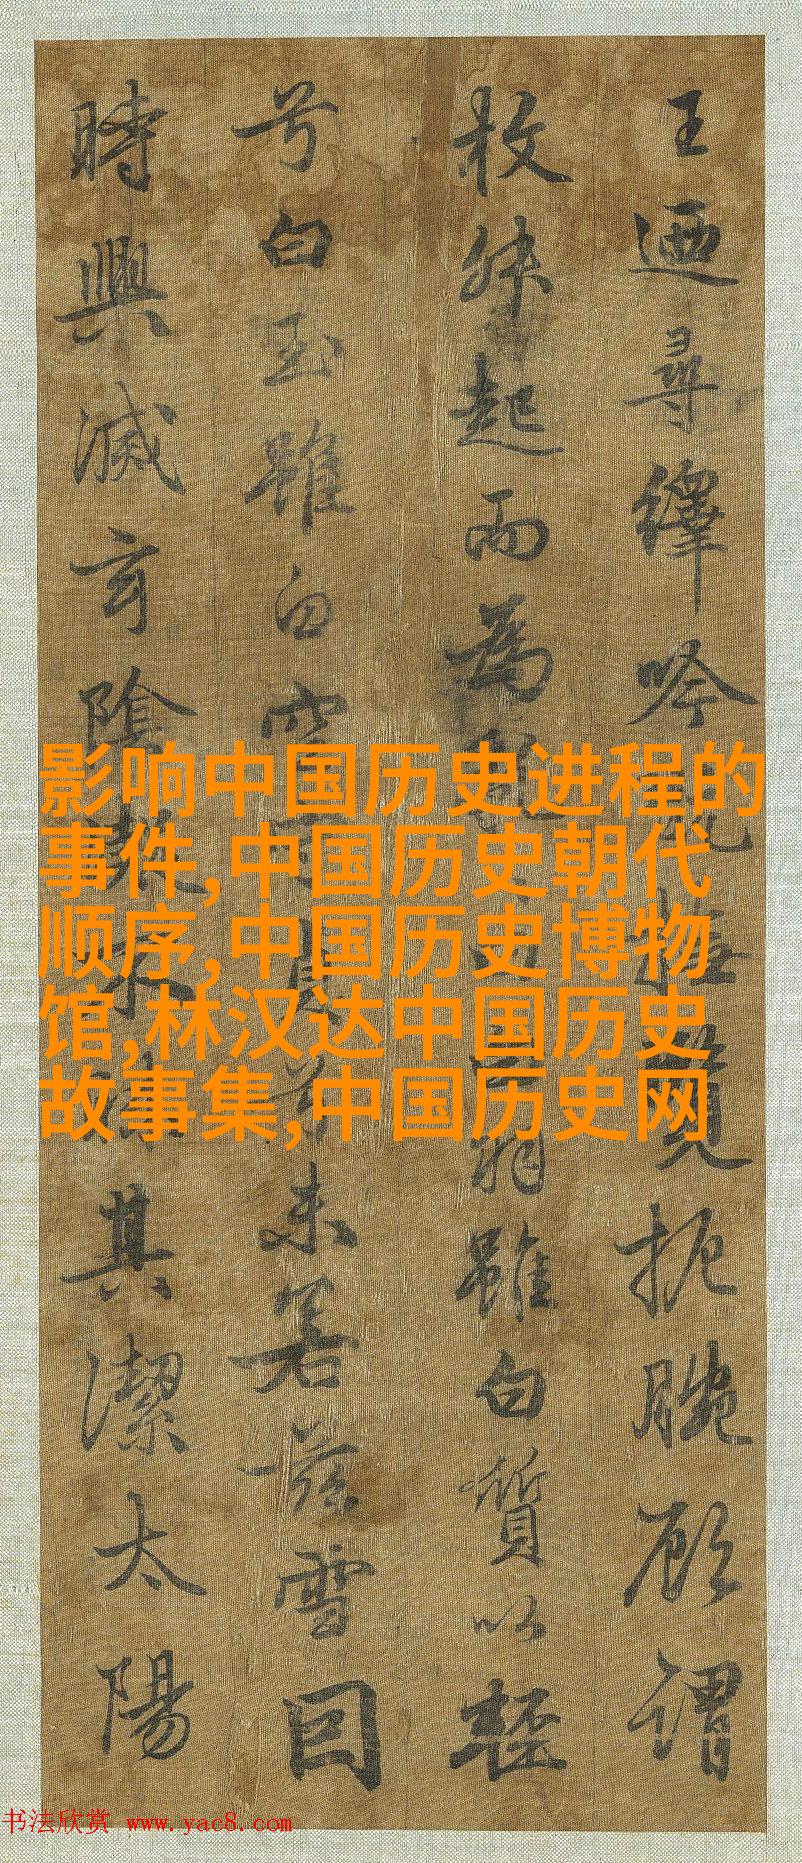 影响中国历史进程的
事件,中国历史朝代
顺序,中国历史博物
馆,林汉达中国历史
故事集,中国历史网
王迺尋繹吟撫覽扼腕顧謂
枚叔起而為羽雖白質以輕
兮白玉雖白空貞未若茲雪因
時興滅玄陰不其潔太陽
书法欣赏 www.yac8.com